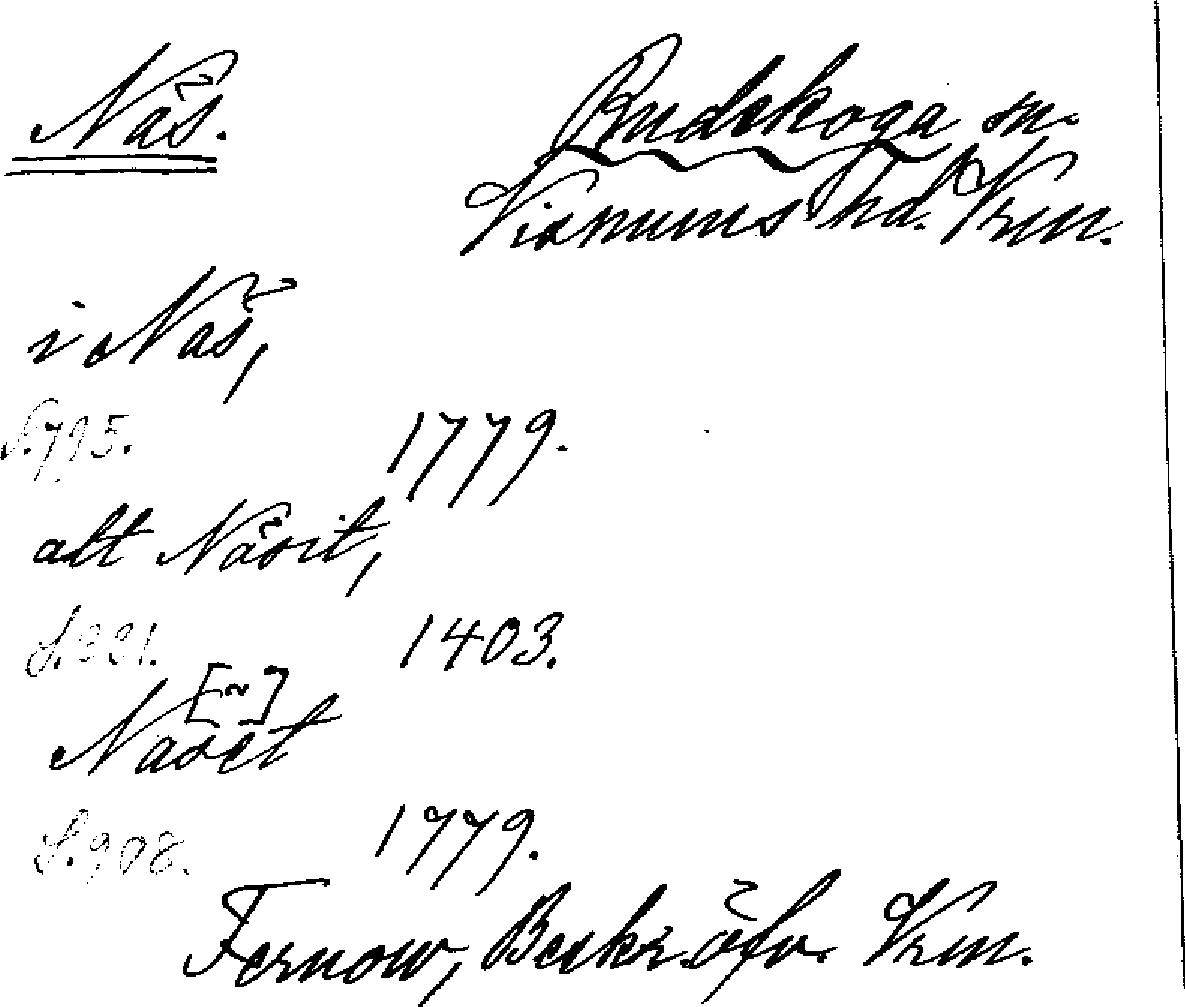 Näs.
Rudskoga sn.
Visnums hd. Vrm.
i Näs,
S. 795. 1779.
alt Näsit,
S. 331. 1403.
[~]
Naset
S. 908. 1779.
Fernow, Beskr. öfv. Vrm.